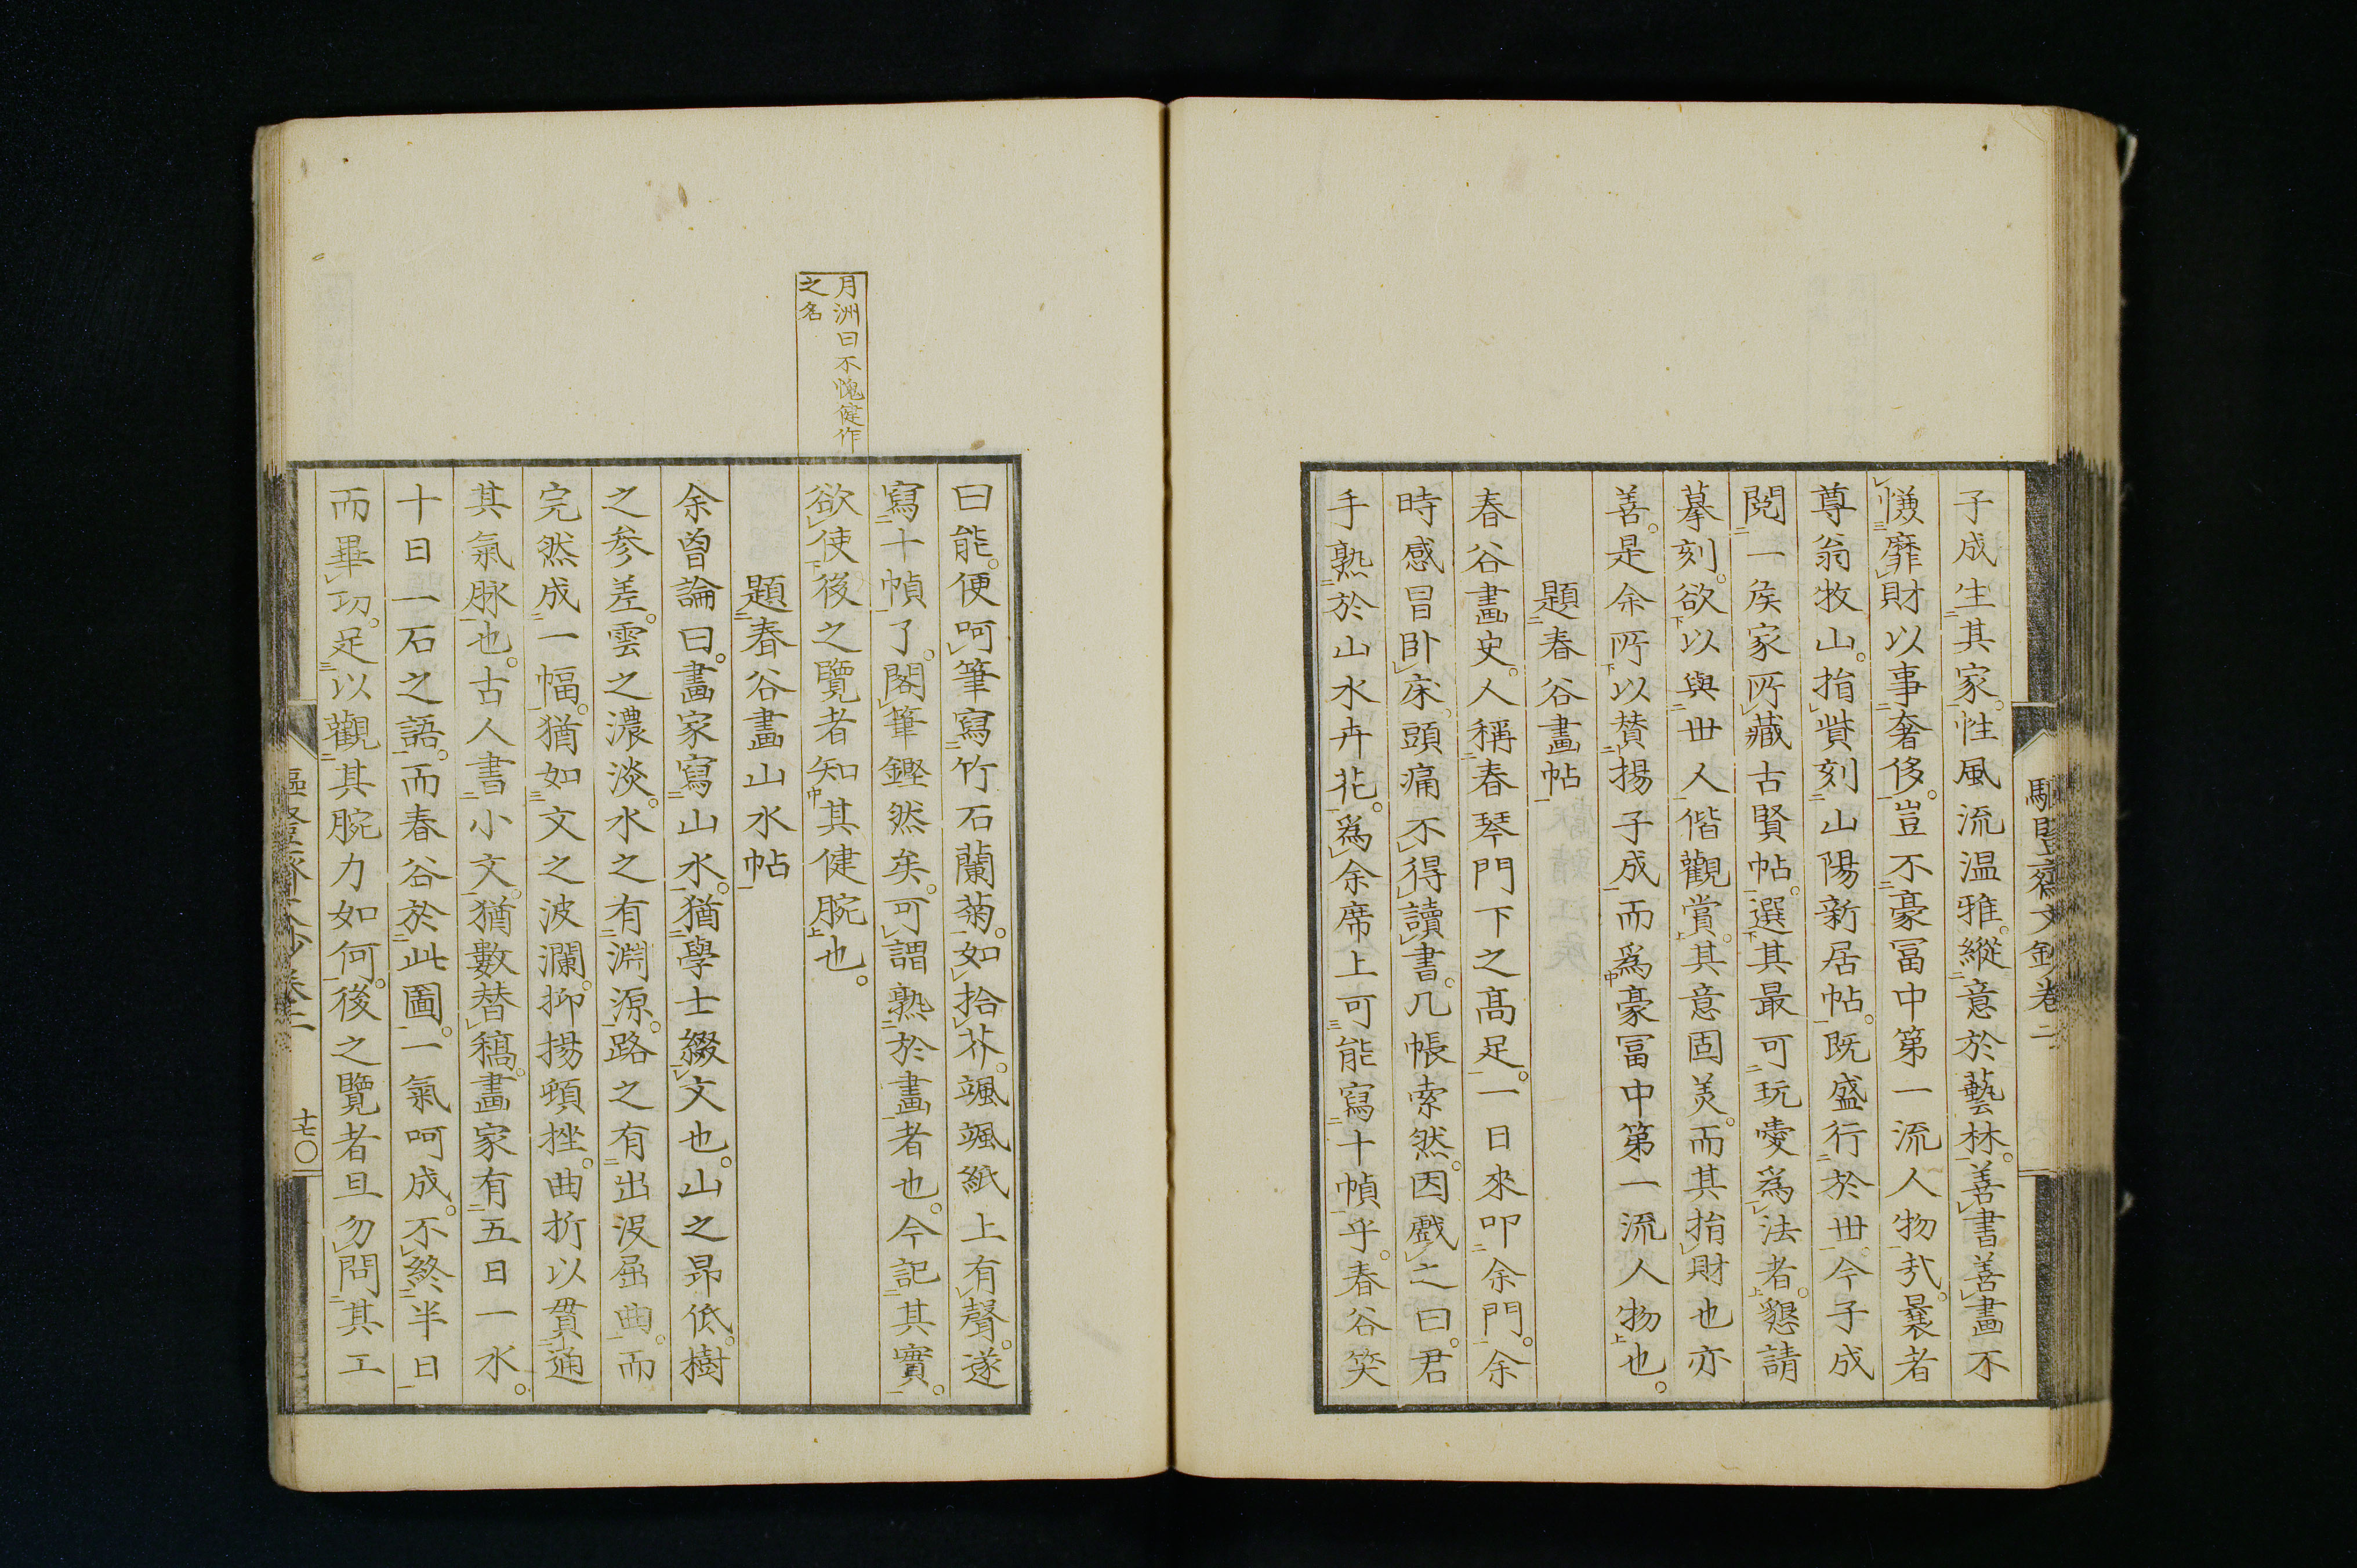 子成生其家。性風流温雅。縱意於藝林。善書善畫不
慊靡財以事奢侈。豈不豪冨中第一流人物㢤。曩者
尊翁牧山。捐貲刻山陽新居帖。既盛行於世。今子成
閲一侯家所藏古賢帖。選其最可玩愛爲法者。懇請
摹刻。欲以與世人偕觀賞。其意固美。而其捐財也亦
善。是余所以賛揚子成而爲豪冨中第一流人物也。
題春谷畫帖
春谷畫史。人稱春琴門下之髙足。一日來叩余門。余
時感冒卧床。頭痛不得讀書。几帳索然。因戲之曰。君
手熟於山水卉花。爲余席上可能寫十幀乎。春谷笑
曰能。便呵筆寫竹石蘭菊。如拾芥。颯颯紙上有聲。遂
寫十幀了。閣筆鏗然矣。可謂熟於畫者也。今記其實。
欲使後之覽者知其健腕也。
月洲曰不愧健作
之名
題春谷畫山水帖
余曾論曰。畫家寫山水。猶學士綴文也。山之昻低。樹
之参差。雲之濃淡。水之有淵源。路之有出没屈曲。而
完然成一幅。猶如文之波瀾。抑揚頓挫。曲折以貫通
其氣脉也。古人書小文。猶數替稿。畫家有五日一水。
十日一石之語。而春谷於此圖。一氣呵成。不終半日
而畢功。足以觀其腕力如何。後之覽者且勿問其工
文鈔卷二
十七